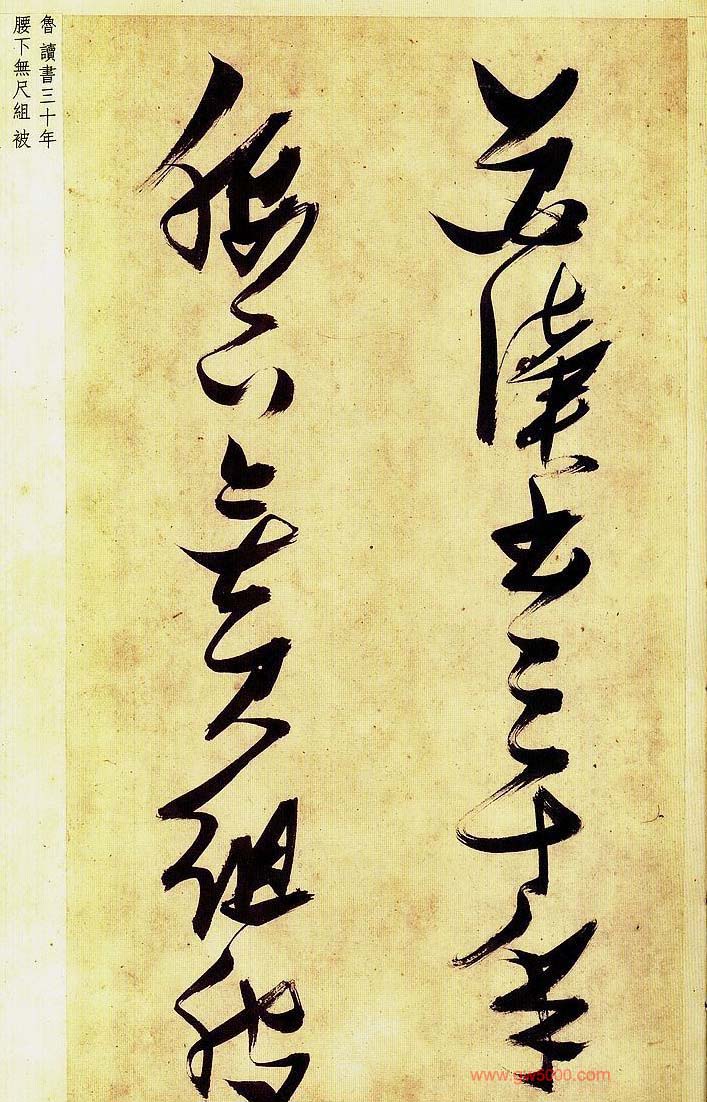 魯讀書三十年
腰下無尺組被
魯 讀書三十年
腰下無尺組 被
www.gw5000.com